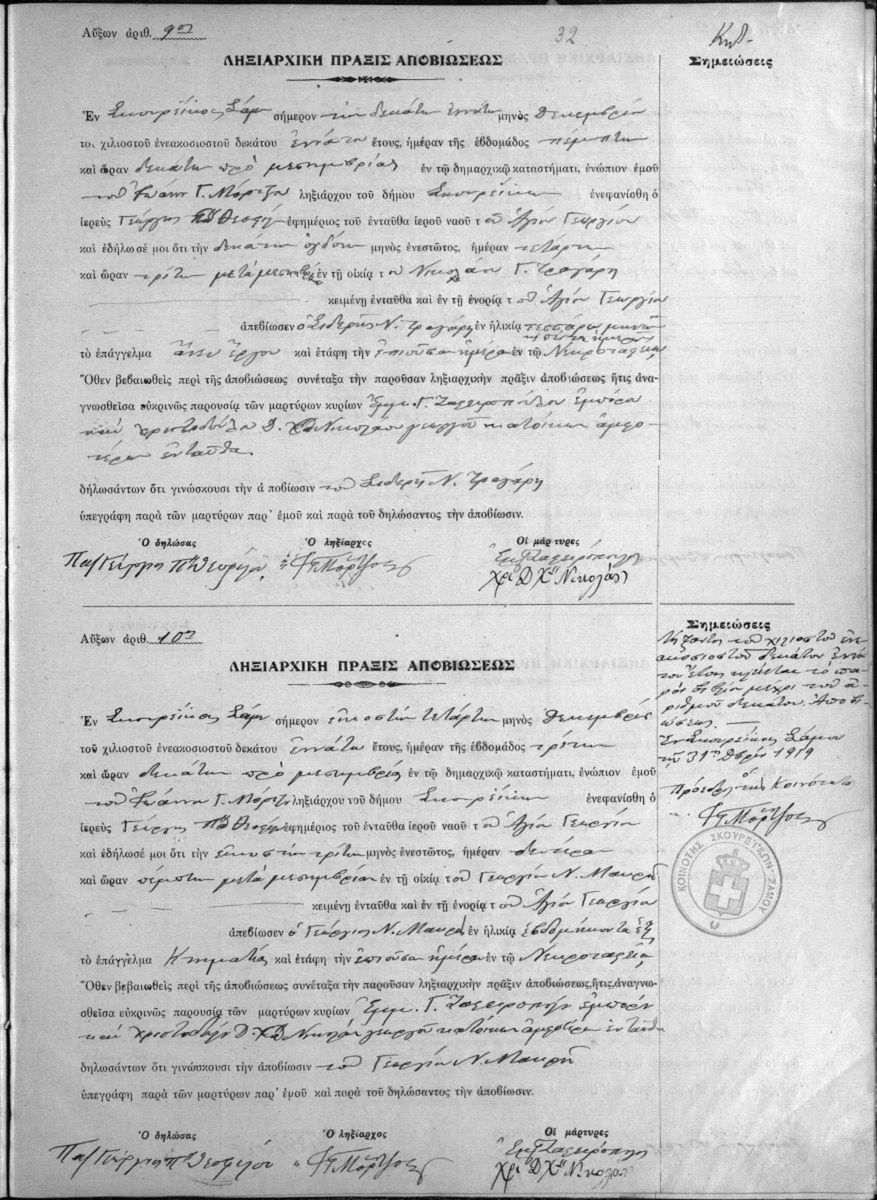 Αὔξων ἀριθ. 9ον
32
Κηδ.
ΛΗΞΙΑΡΧΙΚΗ ΠΡΑΞΙΣ ΑΠΟΒΙΩΣΕΩΣ
Σημειώσεις
Ἐν Σκουρέϊκοις Σάμου σήμερον τὴν δεκάτην ἐννάτην μηνὸς Δεκεμβρίου
τοῦ χιλιοστοῦ ἐνεακοσιοστοῦ δεκάτου ἐννάτου ἔτους, ἡμέραν τῆς ἑβδομάδος πέμπτην
καὶ ὥραν δεκάτην πρὸ μεσημβρίας ἐν τῷ δημαρχικῷ καταστήματι, ἐνώπιον ἐμοῦ
τοῦ Ἰωάνν Γ. Μόρτζου ληξιάρχου τοῦ δήμου Σκουρεΐκων ἐνεφανίσθη ὁ
ἱερεὺς Γεώργιος ΠΘεοφίλου ἐφημέριος τοῦ ἐνταῦθα ἱεροῦ ναοῦ τοῦ Ἁγίου Γεωργίου
καὶ ἐδήλωσέ μοι ὅτι τὴν δεκάτην ὀγδόην μηνὸς ἐνεστῶτος, ἡμέραν τετάρτην
καὶ ὥραν τρίτην μετὰ μεσημβρίαν ἐν τῇ οἰκίᾳ τοῦ Νικολάου Γ. Τραγάρη
κειμένῃ ἐνταῦθα καὶ ἐν τῇ ἐνορίᾳ τοῦ Ἁγίου Γεωργίου
ἀπεβίωσεν ὁ Σιδερῆς Ν. Τραγάρη ἐν ἡλικίᾳ τεσσάρων μηνῶν
τὸ ἐπάγγελμα ἄνευ ἔργου καὶ ἐτάφη τὴν ἐπιοῦσαν ἡμέραν ἐν τῷ Νεκροταφείῳ
Ὅθεν βεβαιωθεὶς περὶ τῆς ἀποβιώσεως συνέταξα τὴν παροῦσαν ληξιαρχικὴν πρᾶξιν ἀποβιώσεως ἥτις ἀνα-
γνωσθεῖσα εὐκρινῶς παρουσίᾳ τῶν μαρτύρων κυρίων Ἐμμ. Γ. Ζαφειροπούλου ἐμπόρου
καὶ Χριστοδούλου Δ. ΧΝικολάου γεωργοῦ κατοίκων ἀμφο-
τέρων ἐνταῦθα.
δηλωσάντων ὅτι γινώσκουσι τὴν ἀποβίωσιν τοῦ Σιδερῆ Ν. Τραγάρη
ὑπεγράφη παρὰ τῶν μαρτύρων παρ' ἐμοῦ καὶ παρὰ τοῦ δηλώσαντος τὴν ἀποβίωσιν.
Ὁ δηλώσας Ὁ ληξίαρχος Οἱ μάρτυρες
Γεώργιος Θεοφίλου Μόρτζος Ἐμ Γ Ζαφειρόπουλος
Χρ Δ Χ Νικολάου
Σημειώσεις
Αὔξων ἀριθ. 10ον
Λήξαντος τοῦ χιλιοστοῦ ἐνε-
ακοσιοστοῦ δεκάτου ἐννά-
του ἔτους κλείεται τὸ πα-
ρὸν βιβλίον μέχρι τοῦ ἀ-
ριθμοῦ δεκάτου. Ἀποβι-
ώσεως.
Ἐν Σκουρεΐκοις Σάμου
τῇ 31ῃ Δβρίου 1919
ὁ
Πρόεδρος τῆς Κοινότητος
Μόρτζος
ΚΟΙΝΟΤΗΣ ΣΚΟΥΡΕΪΚΩΝ ΣΑΜΟΥ
ΛΗΞΙΑΡΧΙΚΗ ΠΡΑΞΙΣ ΑΠΟΒΙΩΣΕΩΣ
Ἐν Σκουρεΐκοις Σάμου σήμερον εἰκοστὴν τετάρτην μηνὸς Δεκεμβρίου
τοῦ χιλιοστοῦ ἐνεακοσιοστοῦ δεκάτου ἐννάτου ἔτους, ἡμέραν τῆς ἑβδομάδος τρίτην
καὶ ὥραν δεκάτην πρὸ μεσημβρίας ἐν τῷ δημαρχικῷ καταστήματι, ἐνώπιον ἐμοῦ
τοῦ Ἰωάννου Γ. Μόρτζου ληξιάρχου τοῦ δήμου Σκουρεΐκων ἐνεφανίσθη ὁ
ἱερεὺς Γεώργιος ΠΘεοφίλου ἐφημέριος τοῦ ἐνταῦθα ἱεροῦ ναοῦ τοῦ Ἁγίου Γεωργίου
καὶ ἐδήλωσέ μοι ὅτι τὴν εἰκοστὴν τρίτην μηνὸς ἐνεστῶτος, ἡμέραν δευτέραν
καὶ ὥραν πέμπτην μετὰ μεσημβρίαν ἐν τῇ οἰκίᾳ τοῦ Γεωργίου Ν. Μαυρῆ
κειμένῃ ἐνταῦθα καὶ ἐν τῇ ἐνορίᾳ τοῦ Ἁγίου Γεωργίου
ἀπεβίωσεν ὁ Γεώργιος Ν. Μαυρῆς ἐν ἡλικίᾳ ἑβδομήκοντα ἓξ
τὸ ἐπάγγελμα Κτηματίας καὶ ἐτάφη τὴν ἐπιοῦσαν ἡμέραν ἐν τῷ Νεκροταφείῳ
Ὅθεν βεβαιωθεὶς περὶ τῆς ἀποβιώσεως συνέταξα τὴν παροῦσαν ληξιαρχικὴν πρᾶξιν ἀποβιώσεως, ἥτις, ἀναγνω-
σθεῖσα εὐκρινῶς παρουσίᾳ τῶν μαρτύρων κυρίων Ἐμμ. Γ. Ζαφειροπούλου ἐμπόρου
καὶ Χριστοδούλου Δ. ΧΝικολάου γεωργοῦ κατοίκων ἀμφοτέρων ἐνταῦθα
δηλωσάντων ὅτι γινώσκουσι τὴν ἀποβίωσιν τοῦ Γεωργίου Ν. Μαυρῆ
ὑπεγράφη παρὰ τῶν μαρτύρων παρ' ἐμοῦ καὶ παρὰ τοῦ δηλώσαντος τὴν ἀποβίωσιν.
Ὁ δηλώσας Ὁ ληξίαρχος Οἱ μάρτυρες
Γεώργιος Θεοφίλου Μόρτζος Ἐμ Γ Ζαφειρόπουλος
Χρ Δ Χ Νικολάου